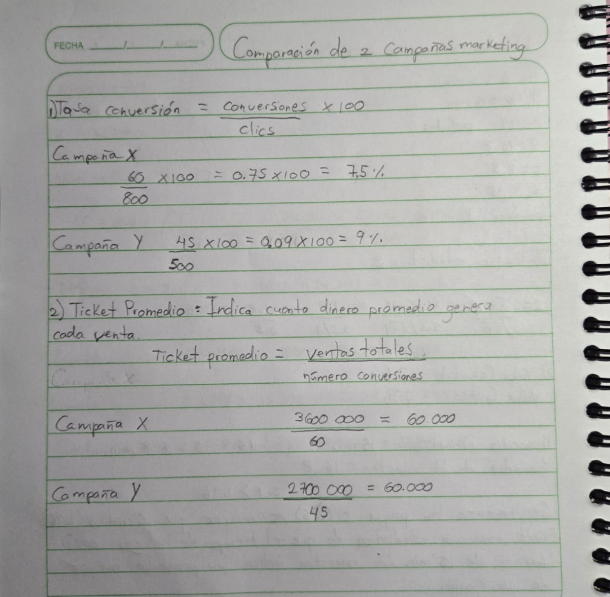 FECHA / / Comparación de 2 Campañas marketing
1) Tasa conversión = conversiones x 100
clics
Campaña X
60 x100 = 0.75 x 100 = 7.5 %
800
Campaña Y 45 x 100 = 0,09 x 100 = 9 %.
500
2) Ticket Promedio : Indica cuanto dinero promedio genera
cada venta.
Ticket promedio = ventas totales
número conversiones
Campaña X 3600 000 = 60.000
60
Campaña Y 2700 000 = 60.000
45